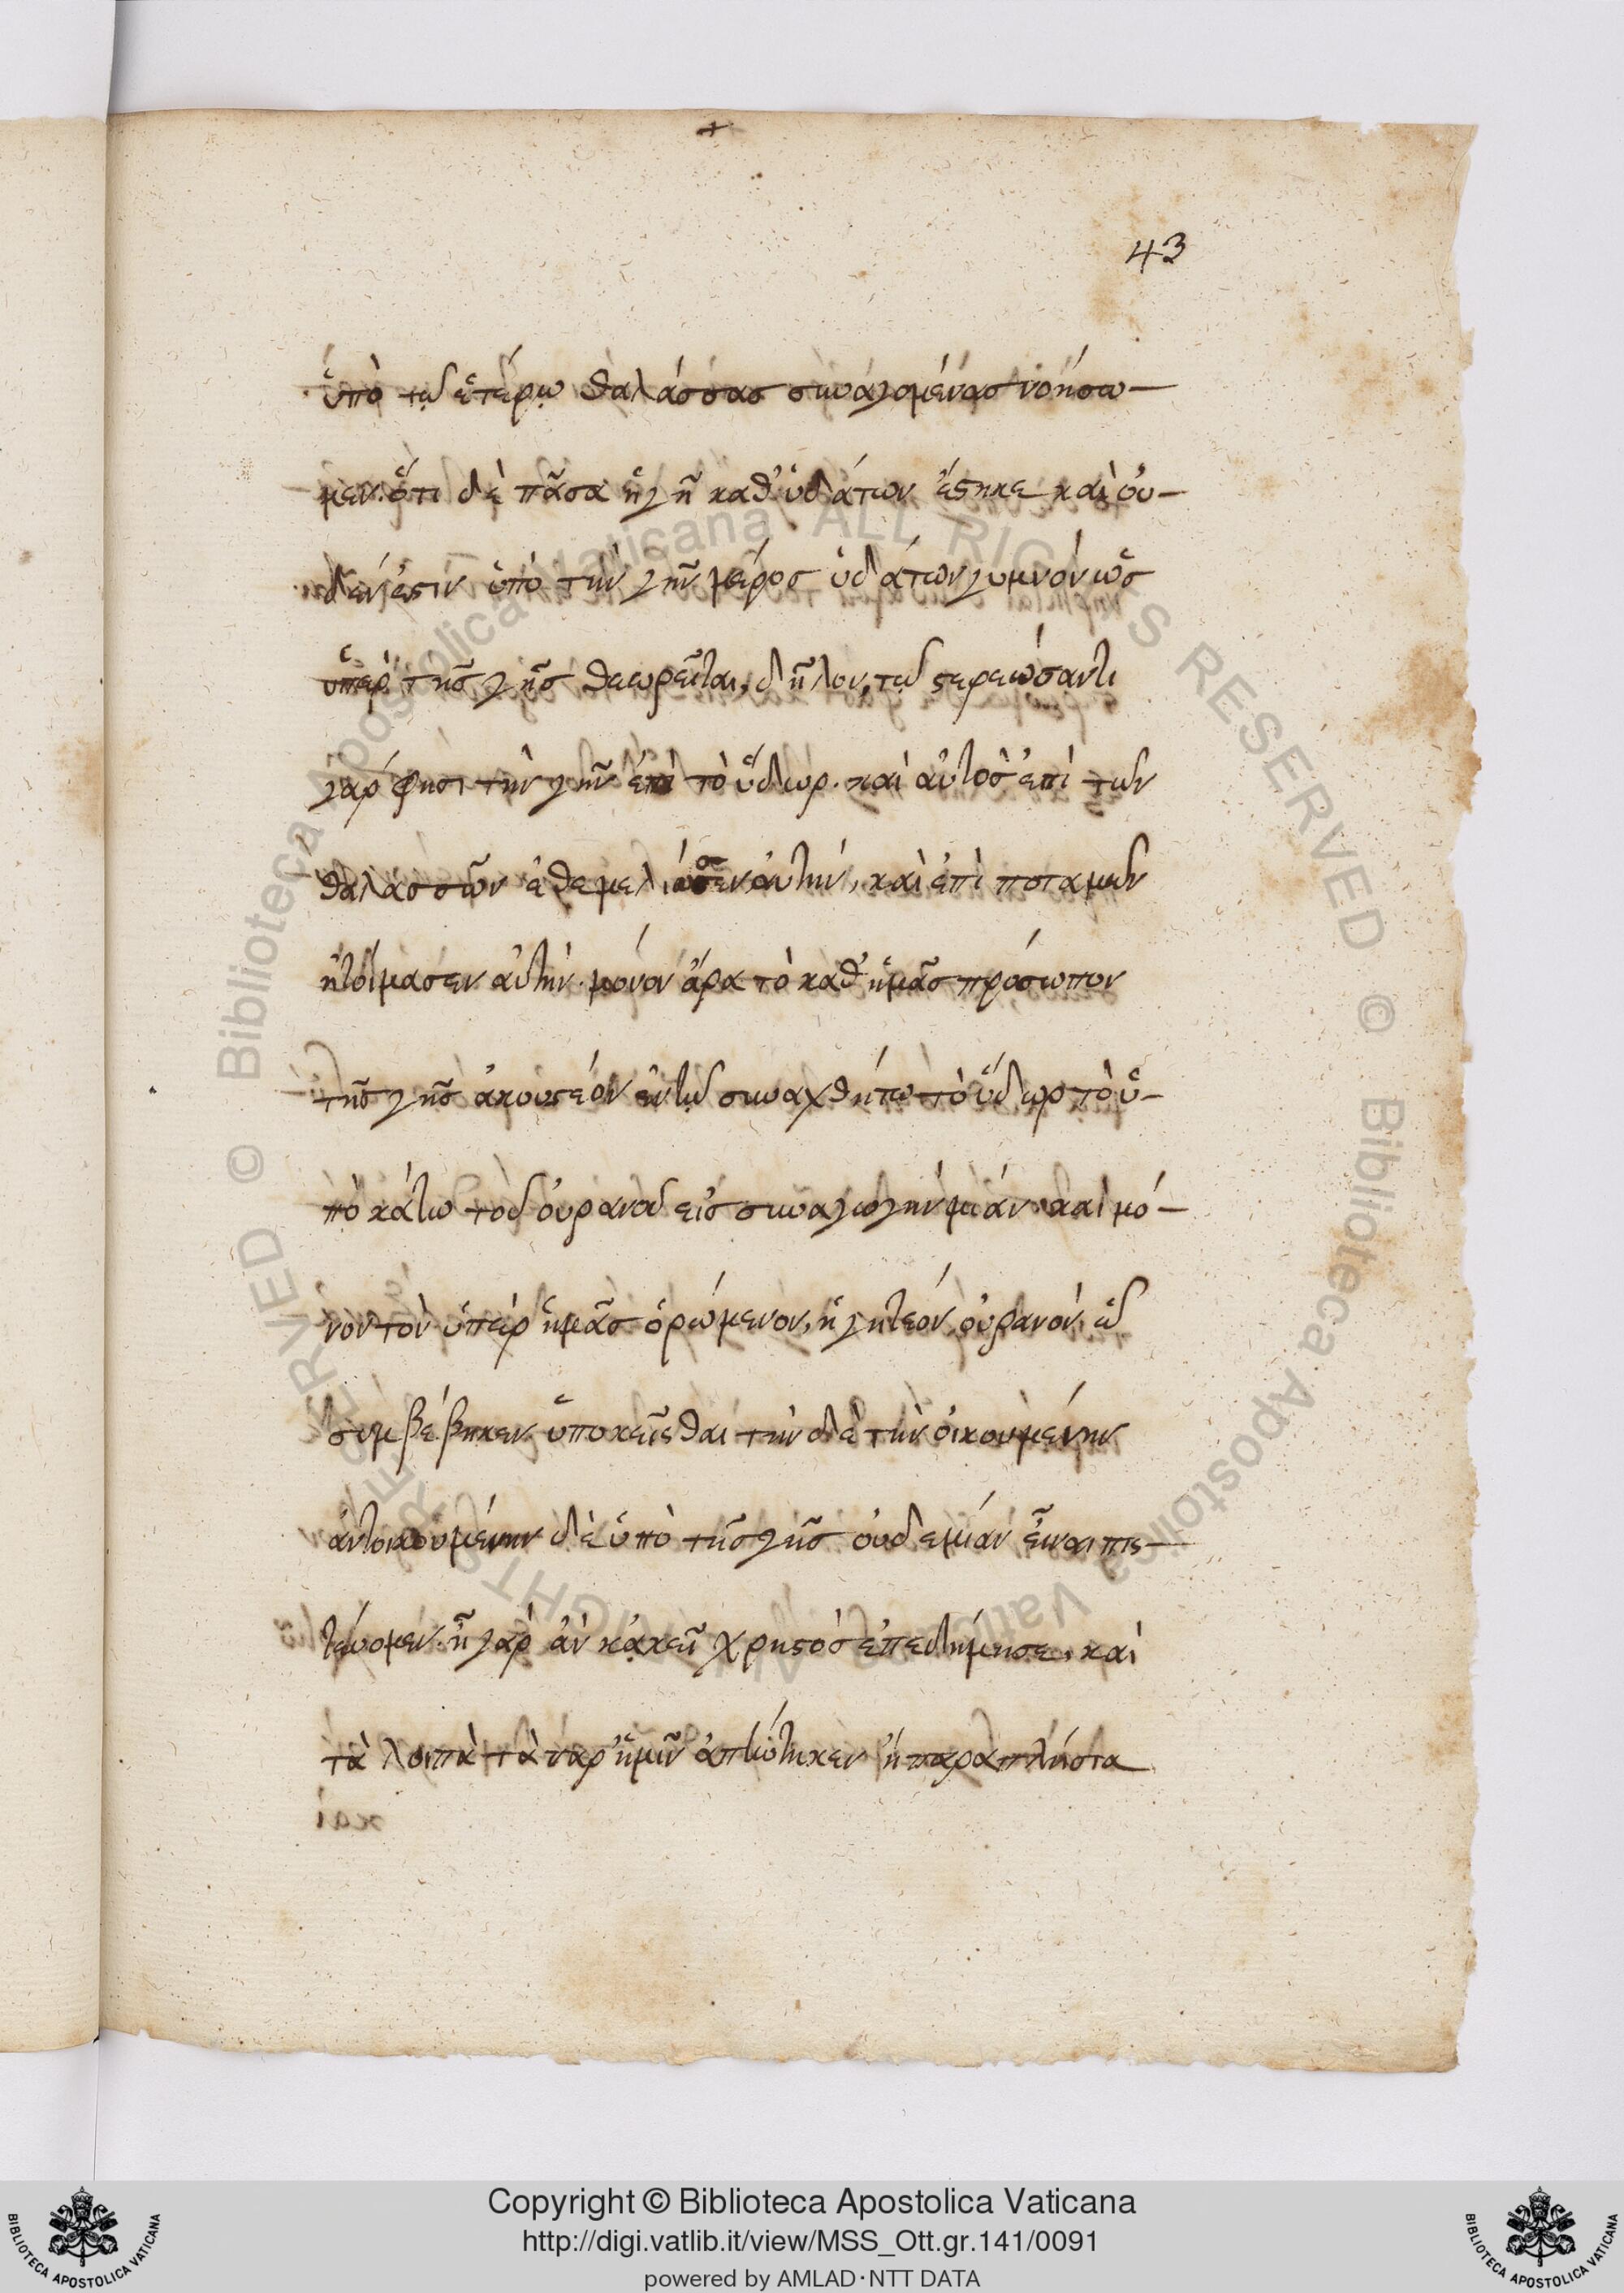 43
ὑπὸ τῷ ἑτέρῳ θαλάσσας συναγομένας νοήσω-
μεν. ὅτι δὲ πᾶσα ἡ γῆ καθ' ὑδάτων ἕστηκε καὶ οὐ-
δέν ἐστιν ὑπὸ τὴν γῆν μέρος ὑδάτων γυμνόν ὡς
ὑπὲρ τῆς γῆς θεωρεῖται, δῆλον, τῷ στερεώσαντι
γάρ φησι τὴν γῆν ἐπὶ τὸ ὕδωρ. καὶ αὐτὸς ἐπὶ τῶν
θαλασσῶν ἐθεμελίωσεν αὐτήν, καὶ ἐπὶ ποταμῶν
ἡτοίμασεν αὐτήν. μόνον ἄρα τὸ καθ' ἡμᾶς πρόσωπον
τῆς γῆς ἀκουστέον ἐν τῷ συναχθήτω τὸ ὕδωρ τὸ ὑ-
πὸ κάτω τοῦ οὐρανοῦ εἰς συναγωγὴν μίαν. καὶ μό-
νον τὸν ὑπὲρ ἡμᾶς ὁρώμενον, ἡγητέον οὐρανόν, ᾧ
συμβέβηκεν ὑποκεῖσθαι τήν δε τὴν οἰκουμένην
ἀντοικουμένην δὲ ὑπὸ τῆς γῆς οὐδεμίαν εἶναι πισ-
τεύομεν. ἦ γὰρ ἂν κἀκεῖ χρηστὸς ἐπεδήμησε, καὶ
τὰ λοιπὰ τὰ παρ' ἡμῖν ἀπ ἢ παραπλήσια
Copyright © Biblioteca Apostolica Vaticana
http://digi.vatlib.it/view/MSS_Ott.gr.141/0091
powered by AMLAD·NTT DATA
BIBLIOTECA APOSTOLICA VATICANA
BIBLIOTECA APOSTOLICA VATICANA
© Biblioteca Apostolica Vaticana ALL RIGHTS RESERVED © Biblioteca Apostolica Vaticana ALL RIGHTS RESERVED